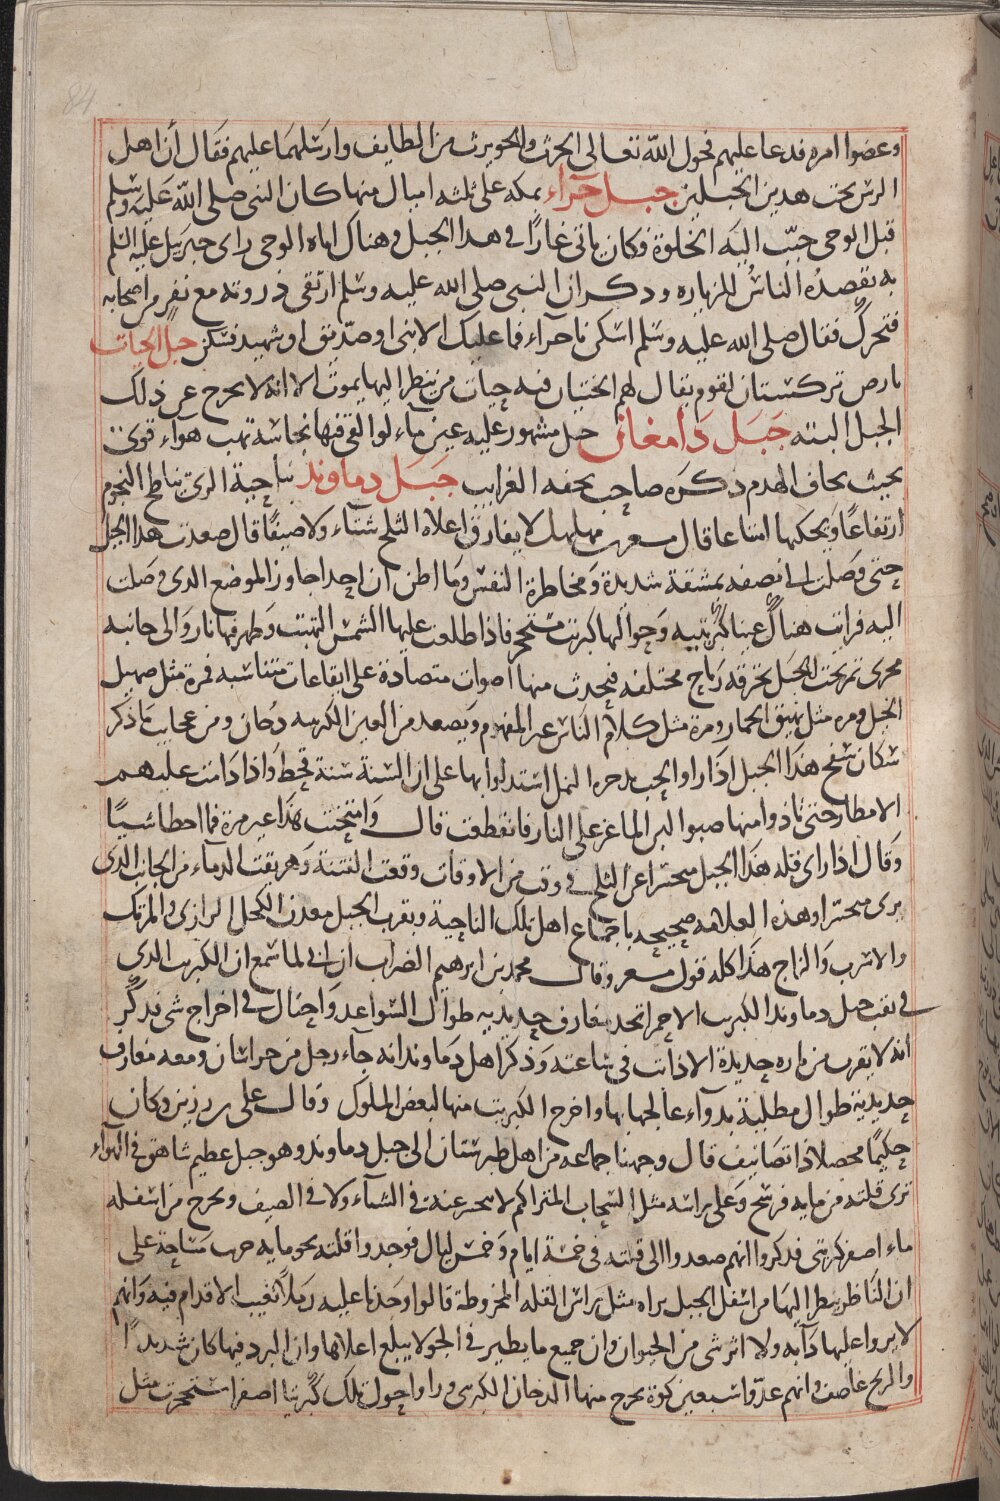 84
وعصوا امره فدعا عليهم فحول الله تعالى الحرث والحويرث من الطايف وارسلهما عليهم فقال أن اهل
الرس تحت هدين الجبلين جبل حرآء بمكه على ثلثه اميال منها كان النبي صلى الله عليه وسلم
قبل الوحى حبّب اليه الخلوة فكان ياتى غارًا فى هدا الجبل وهناك اتاه الوحى راى جبريل عليه السلم
به يقصدُه الناس للزياره ودكر ان النبى صلى الله عليه وسلم ارتقى ذروته مع نفر من اصحابه
فتحرك فقال صلى الله عليه وسلم اسكن يا حراء فما عليك الا نبى او صدّيق او شهيد فسكن جبل الحيات
بارض تركستان لقوم يقال لهم الختيان فيه حيات من ينظر اليها يموت الا انه لا يخرج عن ذلك
الجبل البته جبل دامغان جبل مشهور عليه عين ماء لو القى فيها نجاسة تهب هواء قوى
بحيث يخاف الهدم دكره صاحب تحفه الغرايب جبل دماوند بناحية الرى يناطح النجوم
ارتفاعًا ويحكيها امتناعا قال مسعر بن مهلهل لا يفارق اعلاه الثلج شتاء ولا صيفًا قال صعدت هدا الجبل
حتى وصلت الى نصفه بمشقة شديدة ومخاطرة النفس وما اظن ان احدا جاوز الموضع الدى وصلت
اليه فرايت هناك عينا كبريتيه وحوالها كبريت مستحجر فاذا طلعت عليها الشمس التهبت وظهر فيها نار والى جانبه
مجرى تمر تحت الجبل يخرقه رياح مختلفه فيحدث منها اصوات متصادة على ايقاعات متناسبه فمرة مثل صهيل
الخيل ومره مثل نهيق الحمار ومرة مثل كلام الناس غير المفهوم ويصعد من العين الكبريتيه دخان ومن عجايب ما ذكر
سكان سفح هذا الجبل اذا راوا النمل يدخر الحب استدلوا بها على ان السنة سنة قحط واذا دامت عليهم
الامطار حتى تاذوا منها صبوا لبن الماعز على النار فانقطعت قال وامتحنت هذا غير مرة فما اخطا شيئًا
وقال اذا راى قله هذا الجبل منحسرا عن الثلج فى وقت من الاوقات وقعت الفتنة وهريقت الدماء من الجانب الدى
يرى منحسرا وهذه العلامه صحيحه باجماع اهل تلك الناحية وبقرب الجبل معدن الكحل الرازى والمرتك
والاسرب والزاج هذا كله قول مسعر وقال محمد بن ابرهيم الضراب ان ابى لما سمع ان الكبريت الدى
فى نقب جبل دماوند الكبريت الاحمر اتخذ مغارف حديديه طوال السواعد واحتال فى اخراج شى فدكر
أنه لا يقرب من ناره حديدة الا ذابت فى ساعته وذكر اهل دماوند انه جاء رجل من خراسان ومعه مغارف
حديدية طوال مطلية بدوآء عالجها بها واخرج الكبريت منها لبعض الملوك وقال على بن رزين وكان
حكيمًا محصلا ذا تصانيف قال وجهنا جماعه من اهل طبرستان الى جبل دماوند وهو جبل عظيم شاهق فى الهواء
ترى قلته من مايه فرسخ وعلى راسه مثل السحاب المتراكم لا ينحسر عنه فى الشتآء ولا فى الصيف ويخرج من اسفله
ماء اصفر كبريتى فدكروا انهم صعدوا الى قلته فى خمسة ايام وخمس ليال فوجدوا قلته نحو مايه جريب مساحة على
ان الناظر ينظر اليها من اسفل الجبل يراه مثل راس القله المخروطة قالوا وجدنا عليه رملا تغيب الاقدام فيه وانهم
لا يروا عليها دآبه ولا اثر شى من الحيوان وان جميع ما يطير فى الجو لا يبلغ اعلاها وان البرد فيها كان شديدًا
والريح عاصف وانهم عدوا سبعين كوة يخرج منها الدخان الكبريتى وراوا حول تلك كبريتا اصفرا مستحجرت مثل